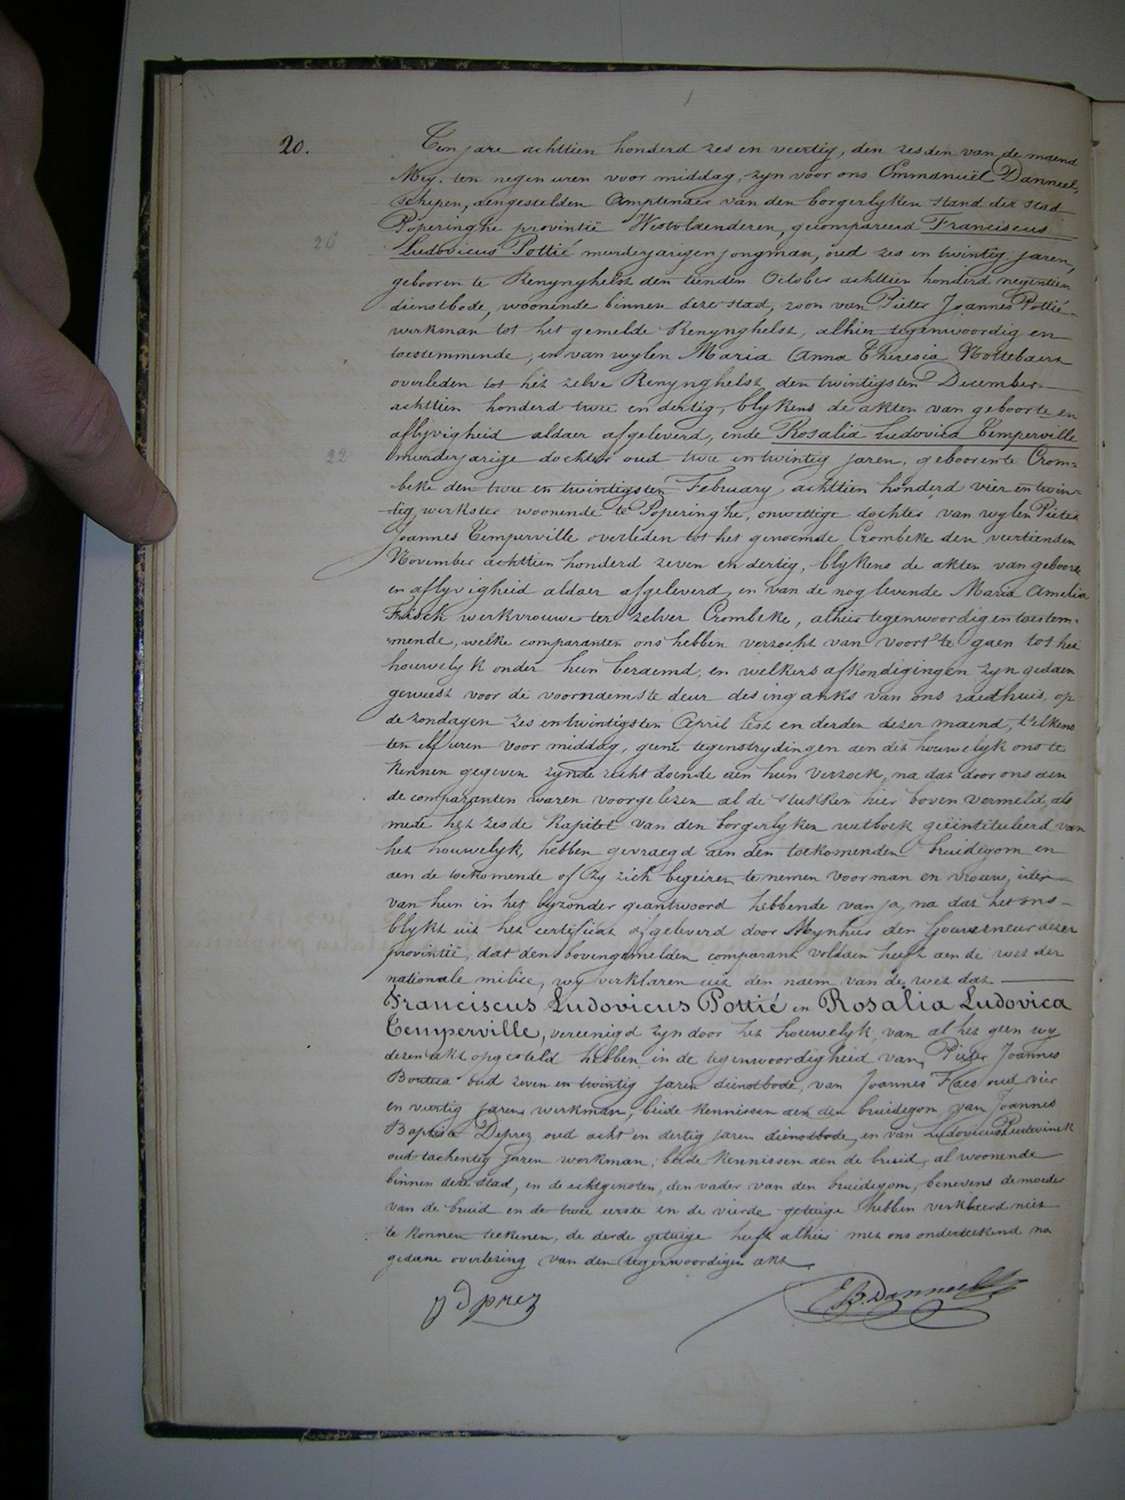 20.
Ten jare achttien honderd zes en veertig, den zesden van de maend
Mey, ten negen uren voor middag, zyn voor ons Emmanuël Danneel,
schepen, aengestelden Amptenaer van den borgerlyken stand der stad
Poperinghe provintië Westvlaenderen, gecompareerd Franciscus
26
Ludovicus Pottié meerderjarigen jongman, oud zes en twintig jaren,
gebooren te Renynghelst den tienden October achttien honderd negentien
dienstbode, woonende binnen deze stad, zoon van Pieter Joannes Pottié
werkman tot het gemelde Renynghelst, alhier tegenwoordig en
toestemmende, en van wylen Maria Anna Theresia Nottebaert
overleden tot het zelve Renynghelst den twintigsten December
achttien honderd twee en dertig, blykens de akten van geboorte en
aflyvigheid aldaer afgeleverd, ende Rosalia Ludovica Temperville
22
meerderjarige dochter oud twee en twintig jaren, geboorente Crom=
beke den twee en twintigsten February achttien honderd vier en twin=
tig, werkster woonende te Poperinghe, onwettige dochter van wylen Pieter
Joannes Temperville overleden tot het genoemde Crombeke den veertienden
November achttien honderd zeven en dertig, blykens de akten van geboorte
en aflyvigheid aldaer afgeleverd, en van de nog levende Maria Amelia
werkvrouwe ter zelver Crombeke, alhier tegenwoordig en toestem=
mende, welke comparanten ons hebben verzocht van voort te gaen tot het
houwelyk onder hun beraemd, en welkers afkondigingen zyn gedaen
geweest voor de voornaemste deur des ingangs van ons raedhuis, op
de zondagen zes en twintigsten April lest en derden dezer maend, t'elkens
ten elf uren voor middag, geene tegenstrydingen aen dit houwelyk ons te
kennen gegeven zynde recht doende aen hun verzoek, na dat door ons aen
de comparanten waren voorgelezen al de stukken hier boven vermeld, als
mede het zesde kapitel van den borgerlyken wetboek geïntituleerd van
het houwelyk, hebben gevraegd aen den toekomenden bruidegom en
aen de toekomende of zy zich begeiren te nemen voor man en vrouw, ider
van hun in het byzonder geantwoord hebbende van ja, na dat het ons
blykt uit het certificat afgeleverd door Mynheer den Gouverneur dezer
provintië, dat den bovengemelden comparant voldaen heeft aen de wet der
nationale militie, wy verklaren uit den naem van de wet dat
Franciscus Ludovicus Pottié en Rosalia Ludovica
Temperville, vereenigd zyn door het houwelyk, van al het geen wy
dezen akt opgesteld hebben in de tegenwoordigheid van Pieter Joannes
oud zeven en twintig jaren dienstbode, van Joannes Haes oud vier
en veertig jaren werkman, beide kennissen aen den bruidegom, van Joannes
Baptista Deprez oud acht en dertig jaren dienstbode, en van Ludovicus
oud tachentig jaren werkman, beide kennissen aen de bruid, al woonende
binnen deze stad, en de echtgenoten, den vader van den bruidegom, benevens de moeder
van de bruid en de twee eerste en de vierde getuige hebben verklaerd niet
te konnen teekenen, de derde getuige heeft alhier met ons onderteekend na
gedane overlezing van den tegenwoordigen akt
J Dprez
E.B. Danneel